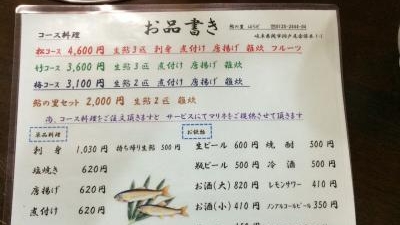 お品書き
コース料理
松コース 4,600円 生鮎3匹 刺身 煮付け 唐揚げ 雑炊 フルーツ
竹コース 3,600円 生鮎3匹 煮付け 唐揚げ 雑炊
梅コース 3,100円 生鮎2匹 煮付け 唐揚げ 雑炊
鮎の里セット 2,000円 生鮎2匹 雑炊
尚、コース料理をご注文頂きますと サービスにてマリネをご提供させて頂きます
単品料理
刺身 1,030円 持ち帰り生鮎 500円
塩焼き 620円
唐揚げ 620円
煮付け 620円
お飲物
生ビール 600円 焼酎 500円
瓶ビール 500円 冷酒 500円
お酒(大) 820円 レモンサワー 410円
お酒(小) 410円 ノンアルコールビール 350円